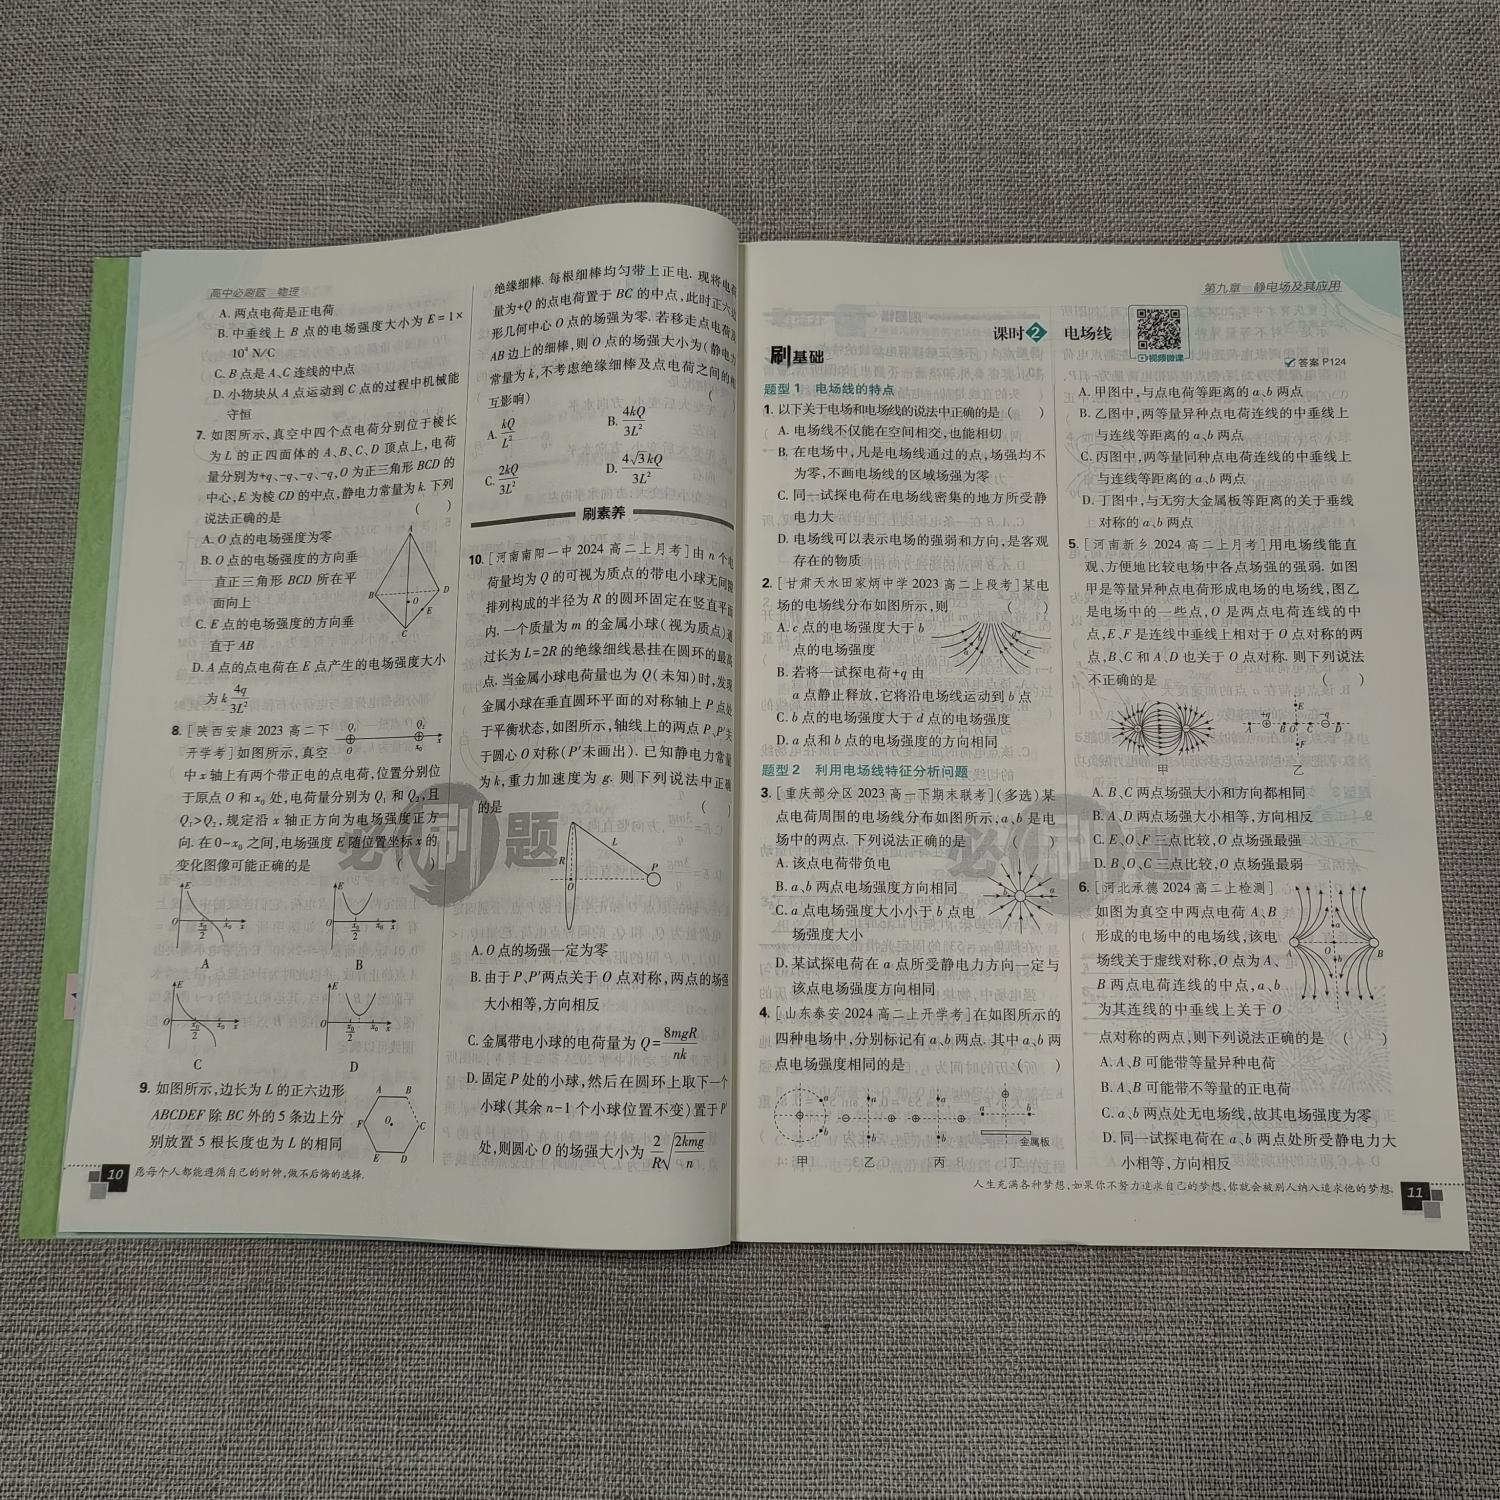 高中必刷题 物理
A. 两点电荷是正电荷
B. 中垂线上 B 点的电场强度大小为 E = 1×
10⁴ N/C
C. B 点是 A、C 连线的中点
D. 小物块从 A 点运动到 C 点的过程中机械能
守恒
7. 如图所示,真空中四个点电荷分别位于棱长
为 L 的正四面体的 A、B、C、D 顶点上,电荷
量分别为+q、-q、-q、-q,O 为正三角形 BCD 的
中心,E 为棱 CD 的中点,静电力常量为 k. 下列
说法正确的是 ( )
A. O 点的电场强度为零
B. O 点的电场强度的方向垂
直正三角形 BCD 所在平
面向上
C. E 点的电场强度的方向垂
直于 AB
D. A 点的点电荷在 E 点产生的电场强度大小
为 k 4q/3L²
A
B
D
O
E
C
8. [陕西安康 2023 高二下
开学考]如图所示,真空
中 x 轴上有两个带正电的点电荷,位置分别位
于原点 O 和 x₀ 处,电荷量分别为 Q₁ 和 Q₂,且
Q₁>Q₂,规定沿 x 轴正方向为电场强度正方
向. 在 0~x₀ 之间,电场强度 E 随位置坐标 x 的
变化图像可能正确的是 ( )
Q₁ Q₂
O x₀ x
E E
O x₀/2 x₀ x O x₀/2 x₀ x
A B
E E
O x₀/2 x₀ x O x₀/2 x₀ x
C D
9. 如图所示,边长为 L 的正六边形
ABCDEF 除 BC 外的 5 条边上分
别放置 5 根长度也为 L 的相同
A B
F O C
E D
10 愿每个人都能遵循自己的时钟,做不后悔的选择.
绝缘细棒. 每根细棒均匀带上正电. 现将电荷
量为+Q 的点电荷置于 BC 的中点,此时正六边
形几何中心 O 点的场强为零. 若移走点电荷及
AB 边上的细棒,则 O 点的场强大小为(静电力
常量为 k,不考虑绝缘细棒及点电荷之间的相
互影响) ( )
A. kQ/L² B. 4kQ/3L²
C. 2kQ/3L² D. 4√3kQ/3L²
刷素养
10. [河南南阳一中 2024 高二上月考]由 n 个电
荷量均为 Q 的可视为质点的带电小球无间隙
排列构成的半径为 R 的圆环固定在竖直平面
内. 一个质量为 m 的金属小球(视为质点)通
过长为 L=2R 的绝缘细线悬挂在圆环的最高
点. 当金属小球电荷量也为 Q(未知)时,发现
金属小球在垂直圆环平面的对称轴上 P 点处
于平衡状态,如图所示,轴线上的两点 P、P′关
于圆心 O 对称(P′未画出). 已知静电力常量
为 k,重力加速度为 g. 则下列说法中正确
的是 ( )
R
L
O
P
A. O 点的场强一定为零
B. 由于 P、P′两点关于 O 点对称,两点的场强
大小相等,方向相反
C. 金属带电小球的电荷量为 Q = 8mgR/nk
D. 固定 P 处的小球,然后在圆环上取下一个
小球(其余 n-1 个小球位置不变)置于 P′
处,则圆心 O 的场强大小为 2/R √(2kmg/n)
必刷题
第九章 静电场及其应用
课时2 电场线
视频微课
答案 P124
刷基础
题型 1 电场线的特点
1. 以下关于电场和电场线的说法中正确的是 ( )
A. 电场线不仅能在空间相交,也能相切
B. 在电场中,凡是电场线通过的点,场强均不
为零,不画电场线的区域场强为零
C. 同一试探电荷在电场线密集的地方所受静
电力大
D. 电场线可以表示电场的强弱和方向,是客观
存在的物质
2. [甘肃天水田家炳中学 2023 高二上段考]某电
场的电场线分布如图所示,则 ( )
A. c 点的电场强度大于 b
点的电场强度
B. 若将一试探电荷+q 由
a 点静止释放,它将沿电场线运动到 b 点
C. b 点的电场强度大于 d 点的电场强度
D. a 点和 b 点的电场强度的方向相同
题型 2 利用电场线特征分析问题
3. [重庆部分区 2023 高一下期末联考](多选)某
点电荷周围的电场线分布如图所示,a、b 是电
场中的两点. 下列说法正确的是 ( )
A. 该点电荷带负电
B. a、b 两点电场强度方向相同
C. a 点电场强度大小小于 b 点电
场强度大小
D. 某试探电荷在 a 点所受静电力方向一定与
该点电场强度方向相同
4. [山东泰安 2024 高二上开学考]在如图所示的
四种电场中,分别标记有 a、b 两点. 其中 a、b 两
点电场强度相同的是 ( )
a a a a
b b b b
金属板
甲 乙 丙 丁
A. 甲图中,与点电荷等距离的 a、b 两点
B. 乙图中,两等量异种点电荷连线的中垂线上
与连线等距离的 a、b 两点
C. 丙图中,两等量同种点电荷连线的中垂线上
与连线等距离的 a、b 两点
D. 丁图中,与无穷大金属板等距离的关于垂线
对称的 a、b 两点
5. [河南新乡 2024 高二上月考]用电场线能直
观、方便地比较电场中各点场强的强弱. 如图
甲是等量异种点电荷形成电场的电场线,图乙
是电场中的一些点,O 是两点电荷连线的中
点,E、F 是连线中垂线上相对于 O 点对称的两
点,B、C 和 A、D 也关于 O 点对称. 则下列说法
不正确的是 ( )
甲 乙
A. B、C 两点场强大小和方向都相同
B. A、D 两点场强大小相等,方向相反
C. E、O、F 三点比较,O 点场强最强
D. B、O、C 三点比较,O 点场强最弱
6. [河北承德 2024 高二上检测]
如图为真空中两点电荷 A、B
形成的电场中的电场线,该电
场线关于虚线对称,O 点为 A、
B 两点电荷连线的中点,a、b
为其连线的中垂线上关于 O
点对称的两点,则下列说法正确的是 ( )
a
A O B
b
A. A、B 可能带等量异种电荷
B. A、B 可能带不等量的正电荷
C. a、b 两点处无电场线,故其电场强度为零
D. 同一试探电荷在 a、b 两点处所受静电力大
小相等,方向相反
必刷题
人生充满各种梦想,如果你不努力追求自己的梦想,你就会被别人纳入追求他的梦想. 11